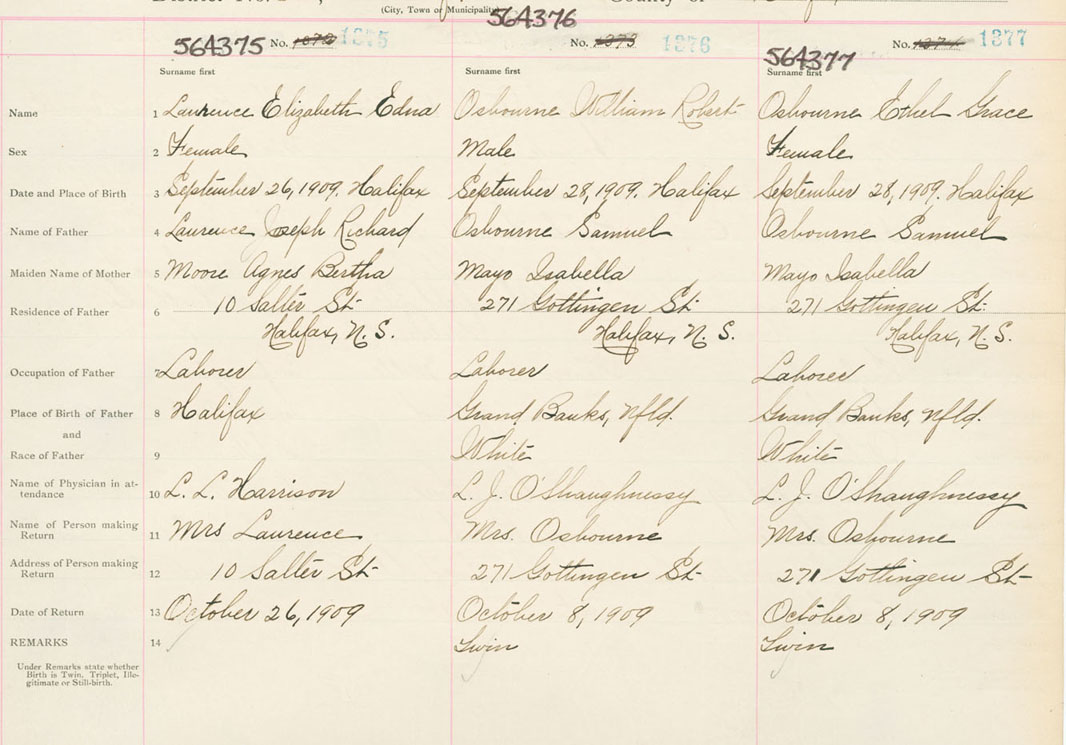 (City, Town or Municipality)
564375 No. 1375
564376 No. 1376
564377 No. 1377
Surname first Surname first Surname first
Name 1 Laurence Elizabeth Edna Osbourne William Robert Osbourne Ethel Grace
Sex 2 Female Male Female
Date and Place of Birth 3 September 26, 1909. Halifax September 28, 1909. Halifax September 28, 1909. Halifax
Name of Father 4 Laurence Joseph Richard Osbourne Samuel Osbourne Samuel
Maiden Name of Mother 5 Moore Agnes Bertha Mayo Isabella Mayo Isabella
Residence of Father 6 10 Salter St. 271 Gottingen St. 271 Gottingen St.
Halifax, N. S. Halifax, N. S. Halifax, N. S.
Occupation of Father 7 Laborer Laborer Laborer
Place of Birth of Father 8 Halifax Grand Banks, Nfld. Grand Banks, Nfld.
and
Race of Father 9 White White
Name of Physician in at-
tendance 10 L. L. Harrison L. J. O'Shaughnessy L. J. O'Shaughnessy
Name of Person making
Return 11 Mrs Laurence Mrs. Osbourne Mrs. Osbourne
Address of Person making
Return 12 10 Salter St 271 Gottingen St 271 Gottingen St
Date of Return 13 October 26, 1909 October 8, 1909 October 8, 1909
REMARKS 14 Twin Twin
Under Remarks state whether
Birth is Twin. Triplet, Ille-
gitimate or Still-birth.